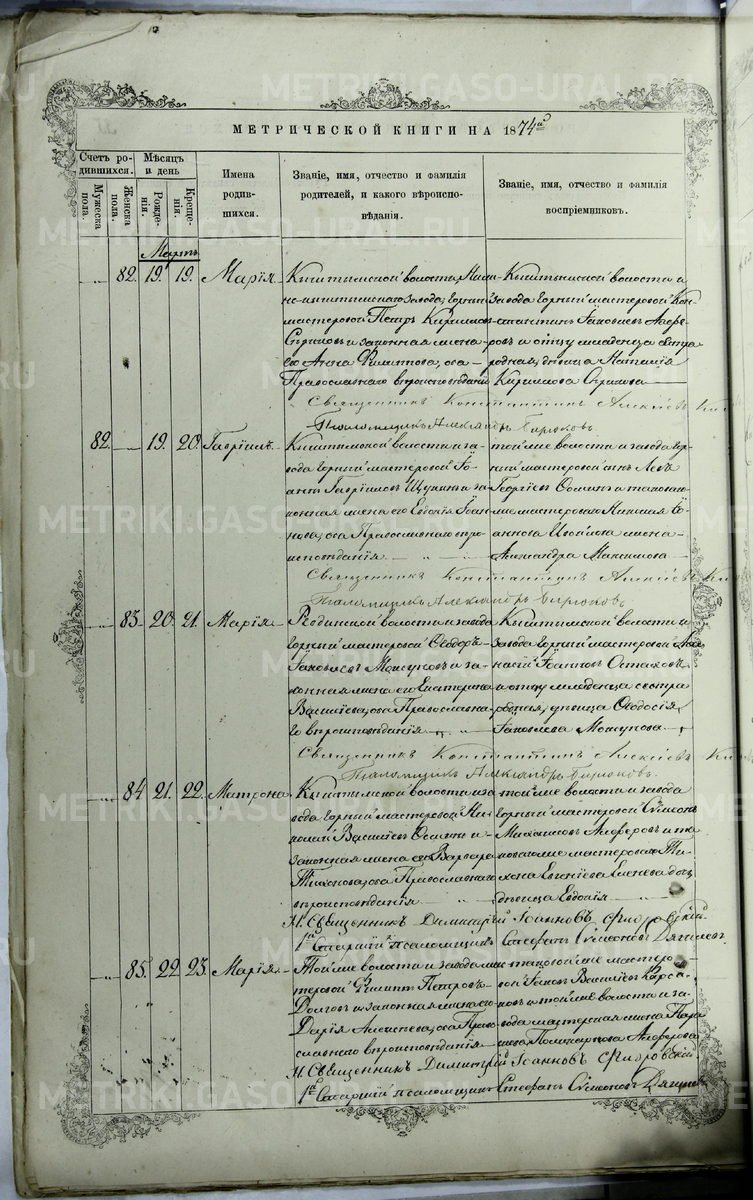 МЕТРИЧЕСКОЙ КНИГИ НА 1874й
Счетъ ро-
дившихся.
Мужеска
пола.
Женска
пола.
Мѣсяцъ
и день
Рожде-
нія.
Креще-
нія.
Имена
родив-
шихся.
Званіе, имя, отчество и фамилія
родителей, и какого вѣроиспо-
вѣданія.
Званіе, имя, отчество и фамилія
воспріемниковъ.
Мартъ
82. 19. 19. Марія
Кыштымской волости, Ниж-
не-кыштымскаго завода, горный
мастеровой Петръ Кириловъ
и законная жена
его Анна Филиппова, оба
Православнаго вѣроисповѣданія
Кыштымской волости и
завода горный мастеровой Кон-
стантинъ Іаковлевъ Алфе-
ровъ и отцу младенца сестра
родная, дѣвица Наталія
Кириллова
Священникъ Константинъ Алексіевъ
Псаломщикъ Александръ Бирюковъ
82. 19. 20. Гавріилъ
Кыштымской волости и за-
вода горный мастеровой Іо-
аннъ Гавріиловъ Щукинъ и за-
конная жена его Евдокія Іоан-
нова, оба Православнаго вѣро-
исповѣданія
той же волости и завода гор-
ный мастеровой Левъ
Георгіевъ Осминъ и таковаго
же мастероваго Іо-
аннова жена
Александра Максимова
Священникъ Константинъ Алексіевъ
Псаломщикъ Александръ Бирюковъ
83. 20. 21. Марія
волости и завода
горный мастеровой Ѳеодоръ
Іаковлевъ и за-
конная жена его Екатерина
Василіева, оба Православна-
го вѣроисповѣданія
Кыштымской волости и
завода горный мастеровой Аѳа-
насій Іоанновъ и
отцу младенца сестра
родная, дѣвица Ѳеодосія
Іаковлева
Священникъ Константинъ Алексіевъ
Псаломщикъ Александръ Бирюковъ.
84 21. 22. Матрона
Кыштымской волости и за-
вода горный мастеровой Ни-
колай Василіевъ Осминъ и
законная жена его Варвара
Тихонова, оба Православнаго
вѣроисповѣданія
той же волости и завода
горный мастеровой Сѵмеонъ
Михаиловъ Алферовъ и та-
коваго же мастероваго Ти-
хона Евгеніева дочь
дѣвица Евдокія
И. Священникъ Димитрій Іоанновъ Флоровскій
1й Старшій псаломщикъ Стефанъ Сѵмеоновъ Дягилевъ
85. 22 23. Марія
Той же волости и завода мас-
теровой Филиппъ Петровъ
Долговъ и законная жена его
Дарія Алексіева, оба Право-
славнаго вѣроисповѣданія
таковой же мастеро-
вой Іаковъ Василіевъ
и той же волости и за-
вода мастерская жена Пара-
скева Поликарпова Алферова
И. Священникъ Димитрій Іоанновъ Флоровскій
1й Старшій псаломщикъ Стефанъ Сѵмеоновъ Дягилевъ
METRIKI.GASO-URAL.RU